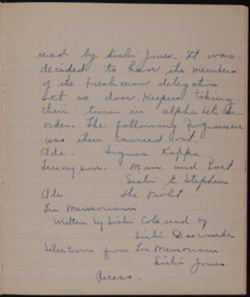 read by Sister Jones. It was
decided to have the members
of the Freshman delegation
act as door keepers taking
their turn in alphabetical
order. The following programme
was then carried out
Ode. Sigma Kappa
Tennyson. Man and Poet
Sister E. Stephens
Ode
In Memoriam
Written by Sister Cole, read by
Sister
Selections from In Memoriam
Sister Jones.
Recess.